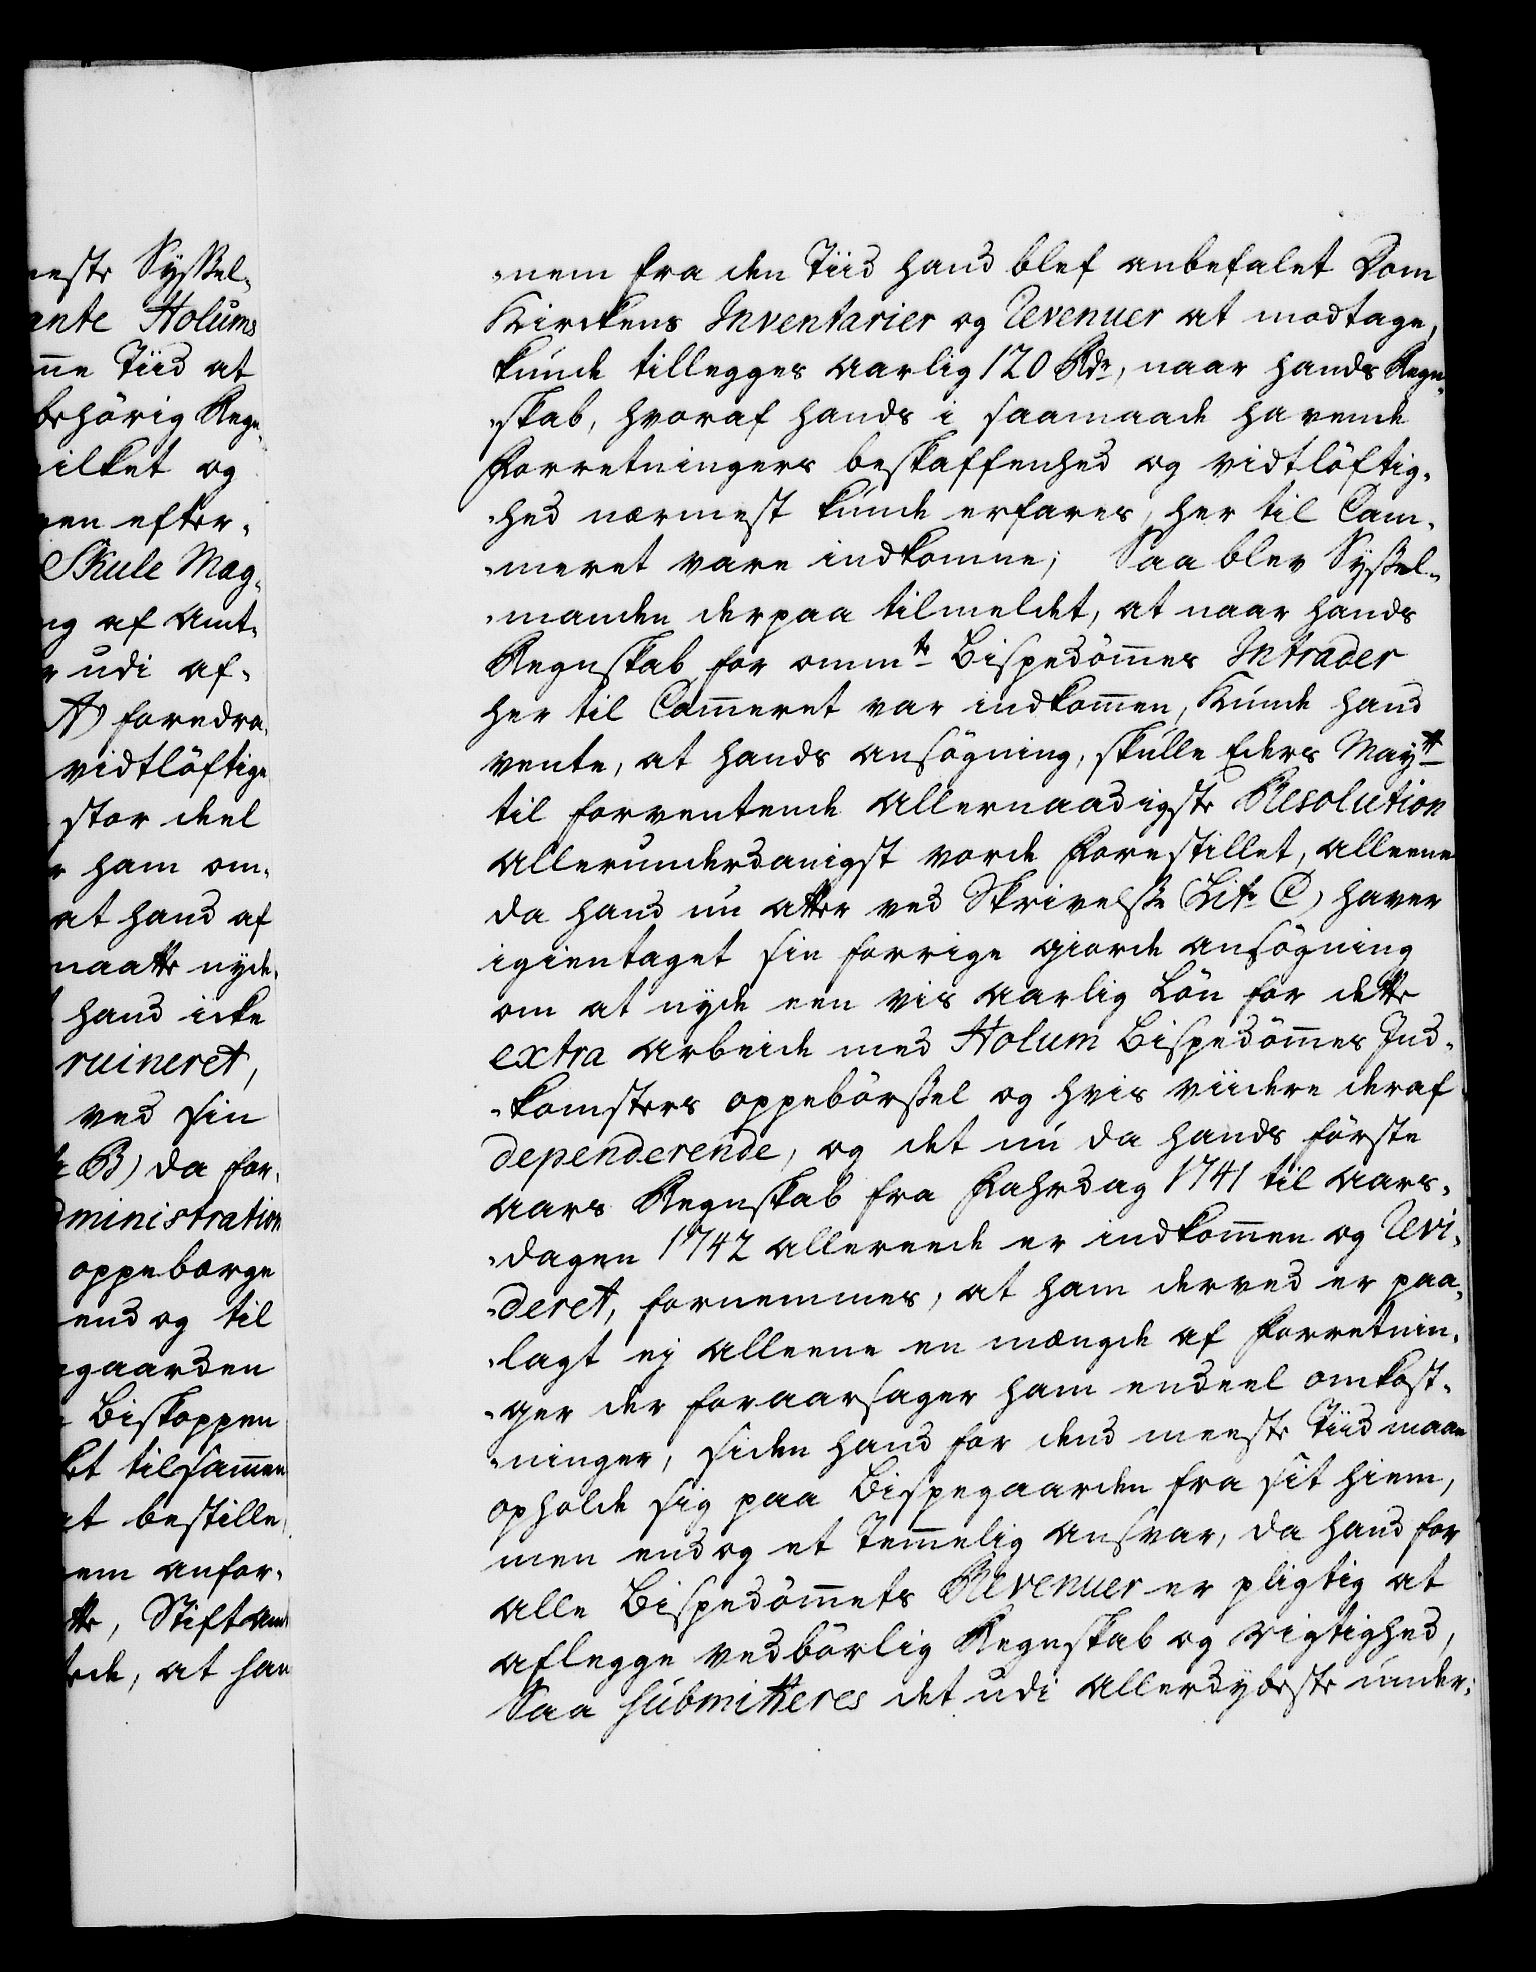 neste Sÿssel-
ante Holums
nne Tiid at
behörig Regn-
ilket og
gen efter-
Skule Mag-
ng af Amt-
r udi af-
A) foredra-
vidtlöftige
stor deel
r ham om-
at hand af
maatte nyde
hand icke
ruineret,
ved sin
B) da for-
dministration
oppebærge
end og til
egaarden
Biskoppen
et tilsam̄en
at bestille
em anfor-
tte, Stiftamt
ede, at han
-nem fra den Tiid hand blef anbefalet Dom
Kirckens Inventarier og Revenuer at modtage,
kunde tillegges aarlig 120 Rdr, naar hands Regn-
-skab, hvoraf hands i saamaade havende
Forretningers beskaffenhed og vidtlöftig-
-hed nærmest kunde erfares, her til Cam-
-meret vare indkomne; Saa blev Sÿssel-
-manden derpaa tilmeldet, at naar hands
Regnskab for ommte Bispedöm̄es Intrader
her til Cam̄eret var indkom̄en, Kunde hand
vente, at hands ansögning, skulle Eders Maytt
til forventende allernaadigste Resolution
allerunderdanigst vorde forestillet, alleene
da hand nu atter ved Skrivelsse (Litr C) haver
igientaget sin forrige giorde ansögning
om at nyde een vis aarlig Lön for dette
extra arbeide med Holum Bispedöm̄es Ind-
-komsters oppebörssel og hvis viidere deraf
dependerende, og det nu da hands förste
aars Regnskab fra Fahrdag 1741 til aars-
-dagen 1742 allereede er indkom̄en og Revi-
-deret, fornemmes, at ham derved er paa-
-lagt ej alleene en mængde af forretnin-
-ger der foraarsager ham endeel omkost-
-ninger, siden hand for dend meeste Tiid maae
opholde sig paa Bispegaarden fra sit hiem,
men endog et Tem̄elig ansvar, da hand for
alle Bispedöm̄ets Revenuer er pligtig at
aflegge vedbörlig Regnskab og rigtighed,
Saa submitteres det udi allerdybeste under-